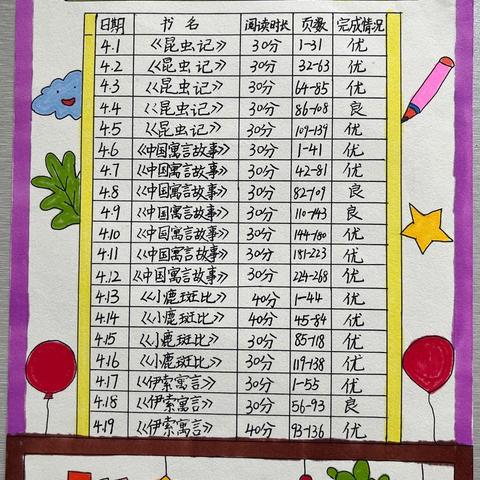 日期 书名 阅读时长 页数 完成情况
4.1 《昆虫记》 30分 1-31 优
4.2 《昆虫记》 30分 32-63 优
4.3 《昆虫记》 30分 64-85 优
4.4 《昆虫记》 30分 86-108 良
4.5 《昆虫记》 30分 109-139 优
4.6 《中国寓言故事》 30分 1-41 优
4.7 《中国寓言故事》 30分 42-81 优
4.8 《中国寓言故事》 30分 82-109 良
4.9 《中国寓言故事》 30分 110-143 良
4.10 《中国寓言故事》 30分 144-180 优
4.11 《中国寓言故事》 30分 181-223 优
4.12 《中国寓言故事》 30分 224-268 优
4.13 《小鹿斑比》 40分 1-44 优
4.14 《小鹿斑比》 40分 45-84 优
4.15 《小鹿斑比》 30分 85-118 优
4.16 《小鹿斑比》 30分 119-138 优
4.17 《伊索寓言》 30分 1-55 优
4.18 《伊索寓言》 30分 56-93 良
4.19 《伊索寓言》 40分 93-136 优